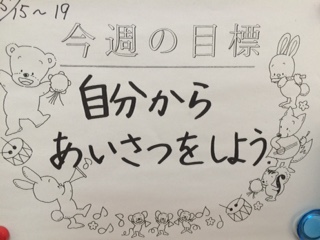 5/15～19
今週の目標
自分から
あいさつをしよう